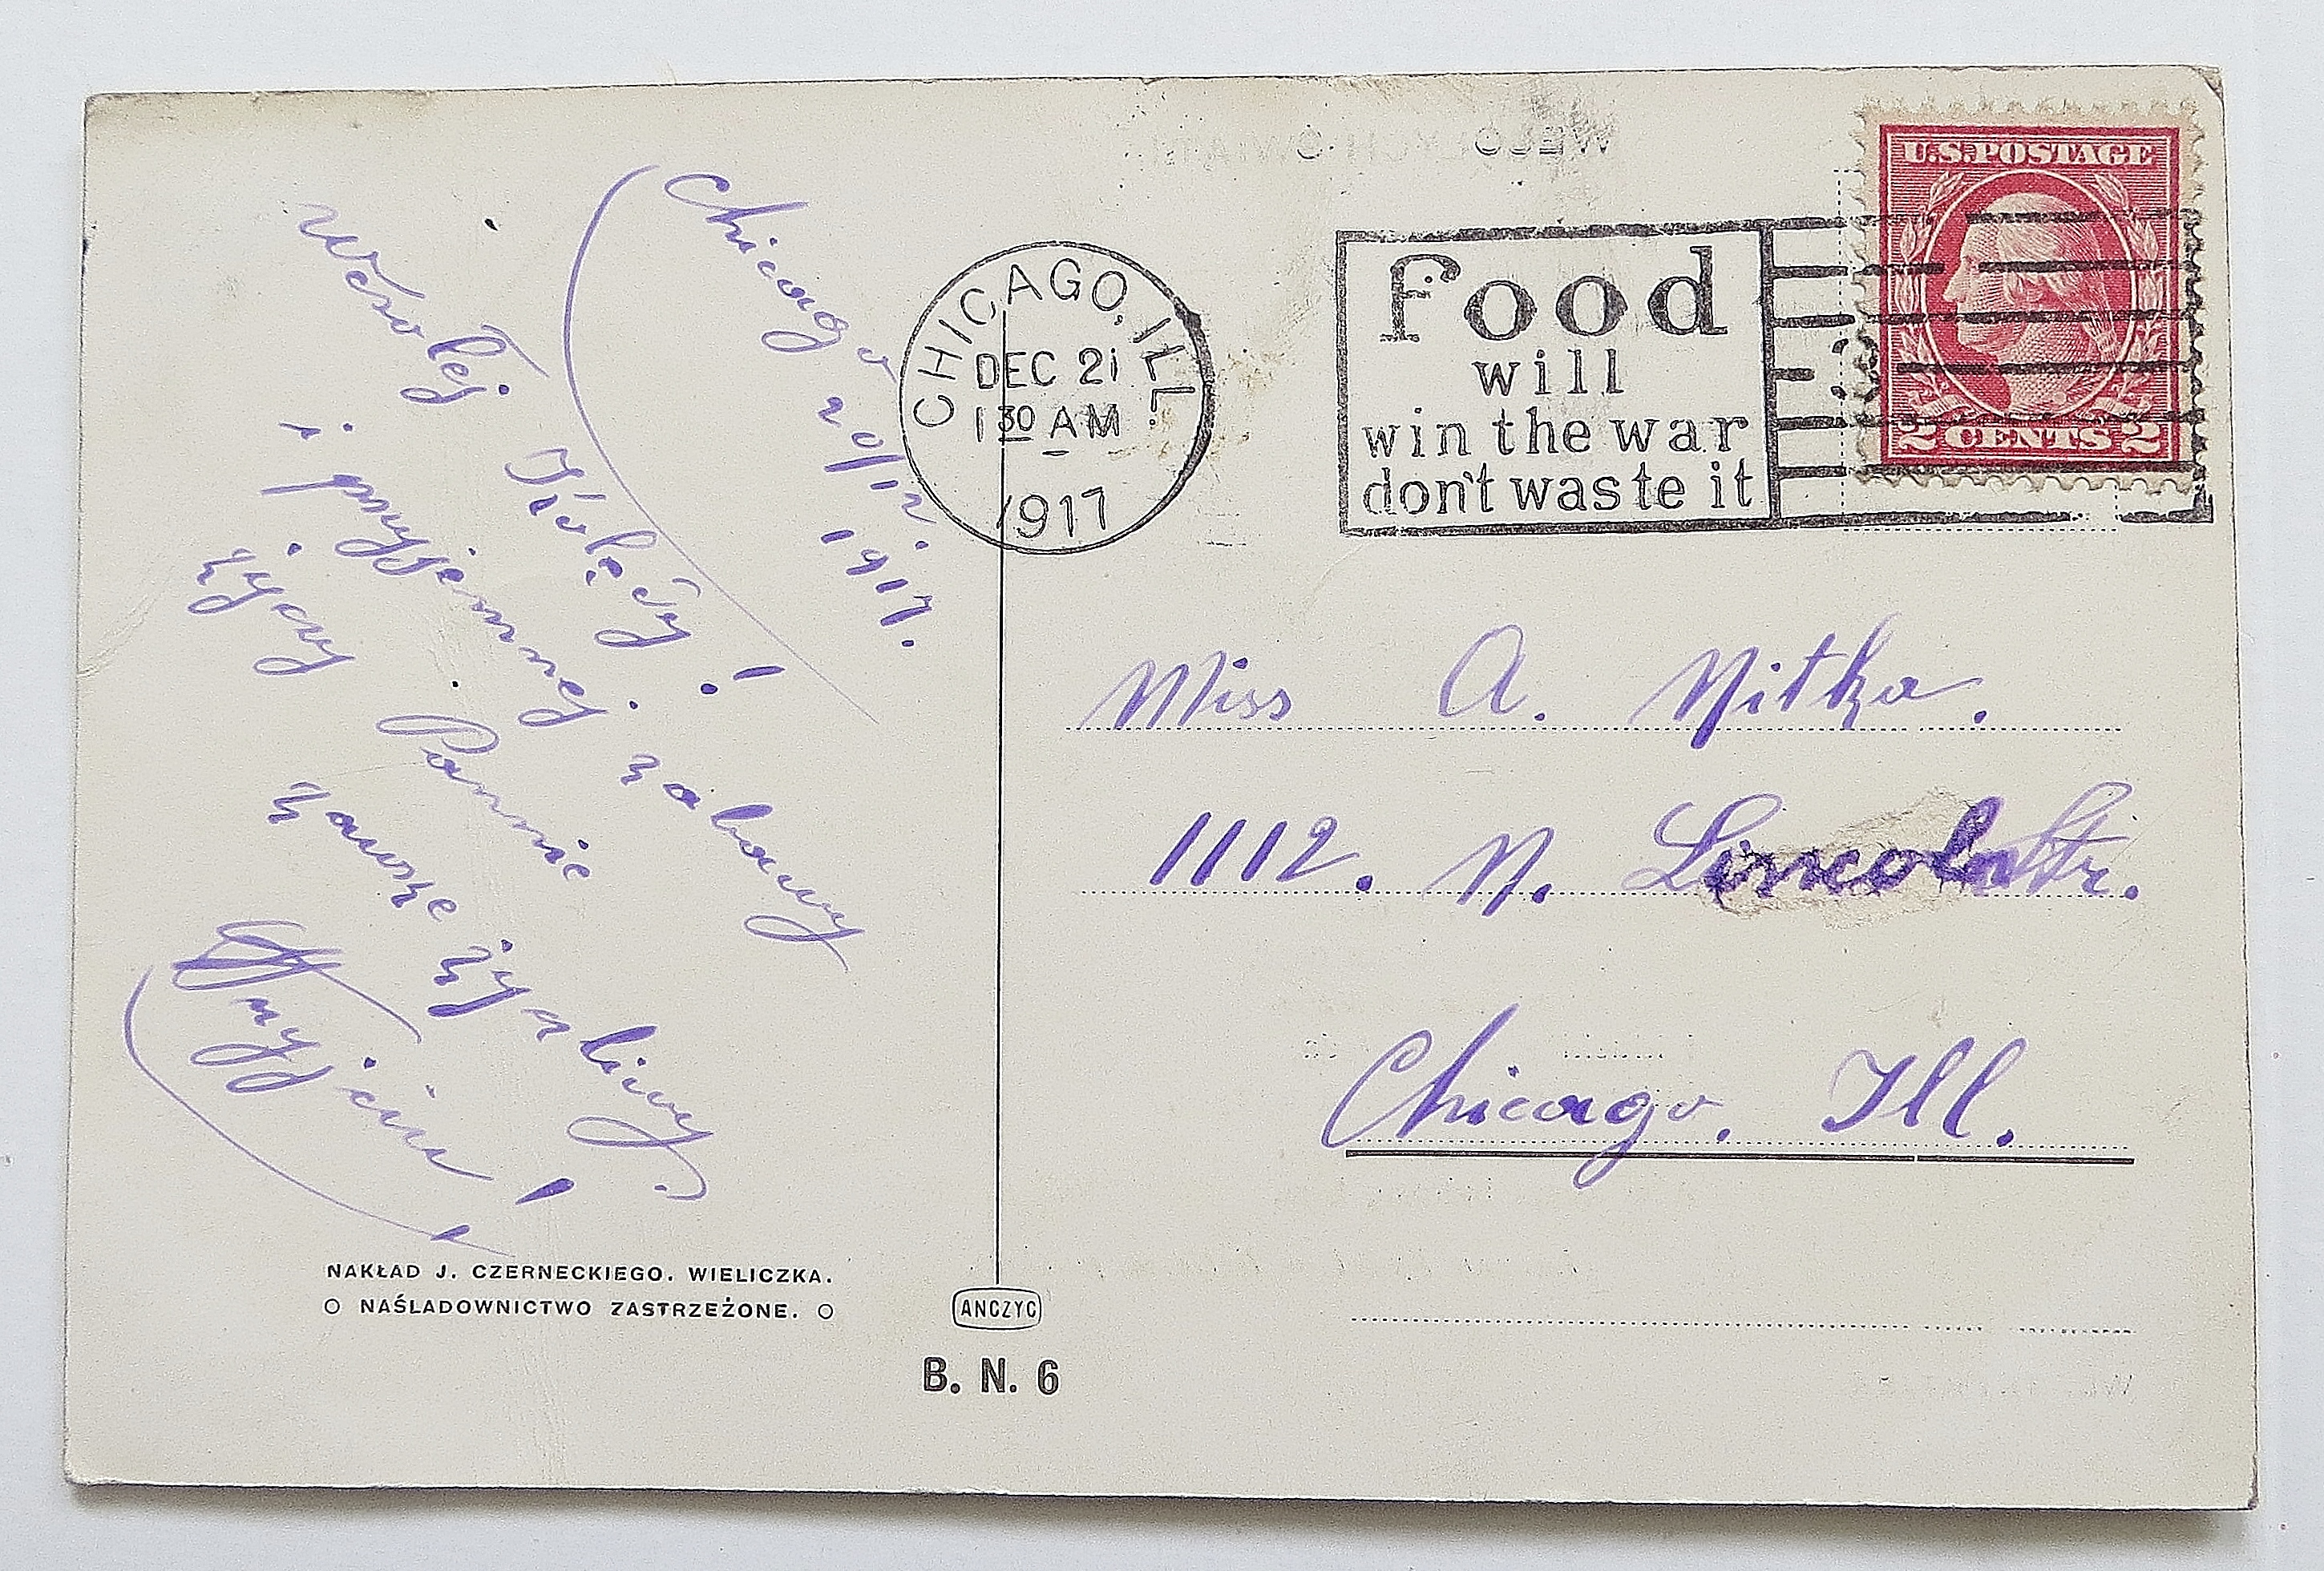 Chicago 20/12. 1917.
Wesołej Kolędy!
i przyjemnej zabawy
życzy Pannie
zawsze życzliwy.
Przyjciel!
CHICAGO, ILL.
DEC 21
1 30 AM
1917
Food
will
win the war
don't waste it
U.S. POSTAGE
2 CENTS 2
Miss A. Nitka.
1112. N. Lincoln Str.
Chicago. Ill.
NAKŁAD J. CZERNECKIEGO. WIELICZKA.
NAŚLADOWNICTWO ZASTRZEŻONE.
ANCZYC
B. N. 6